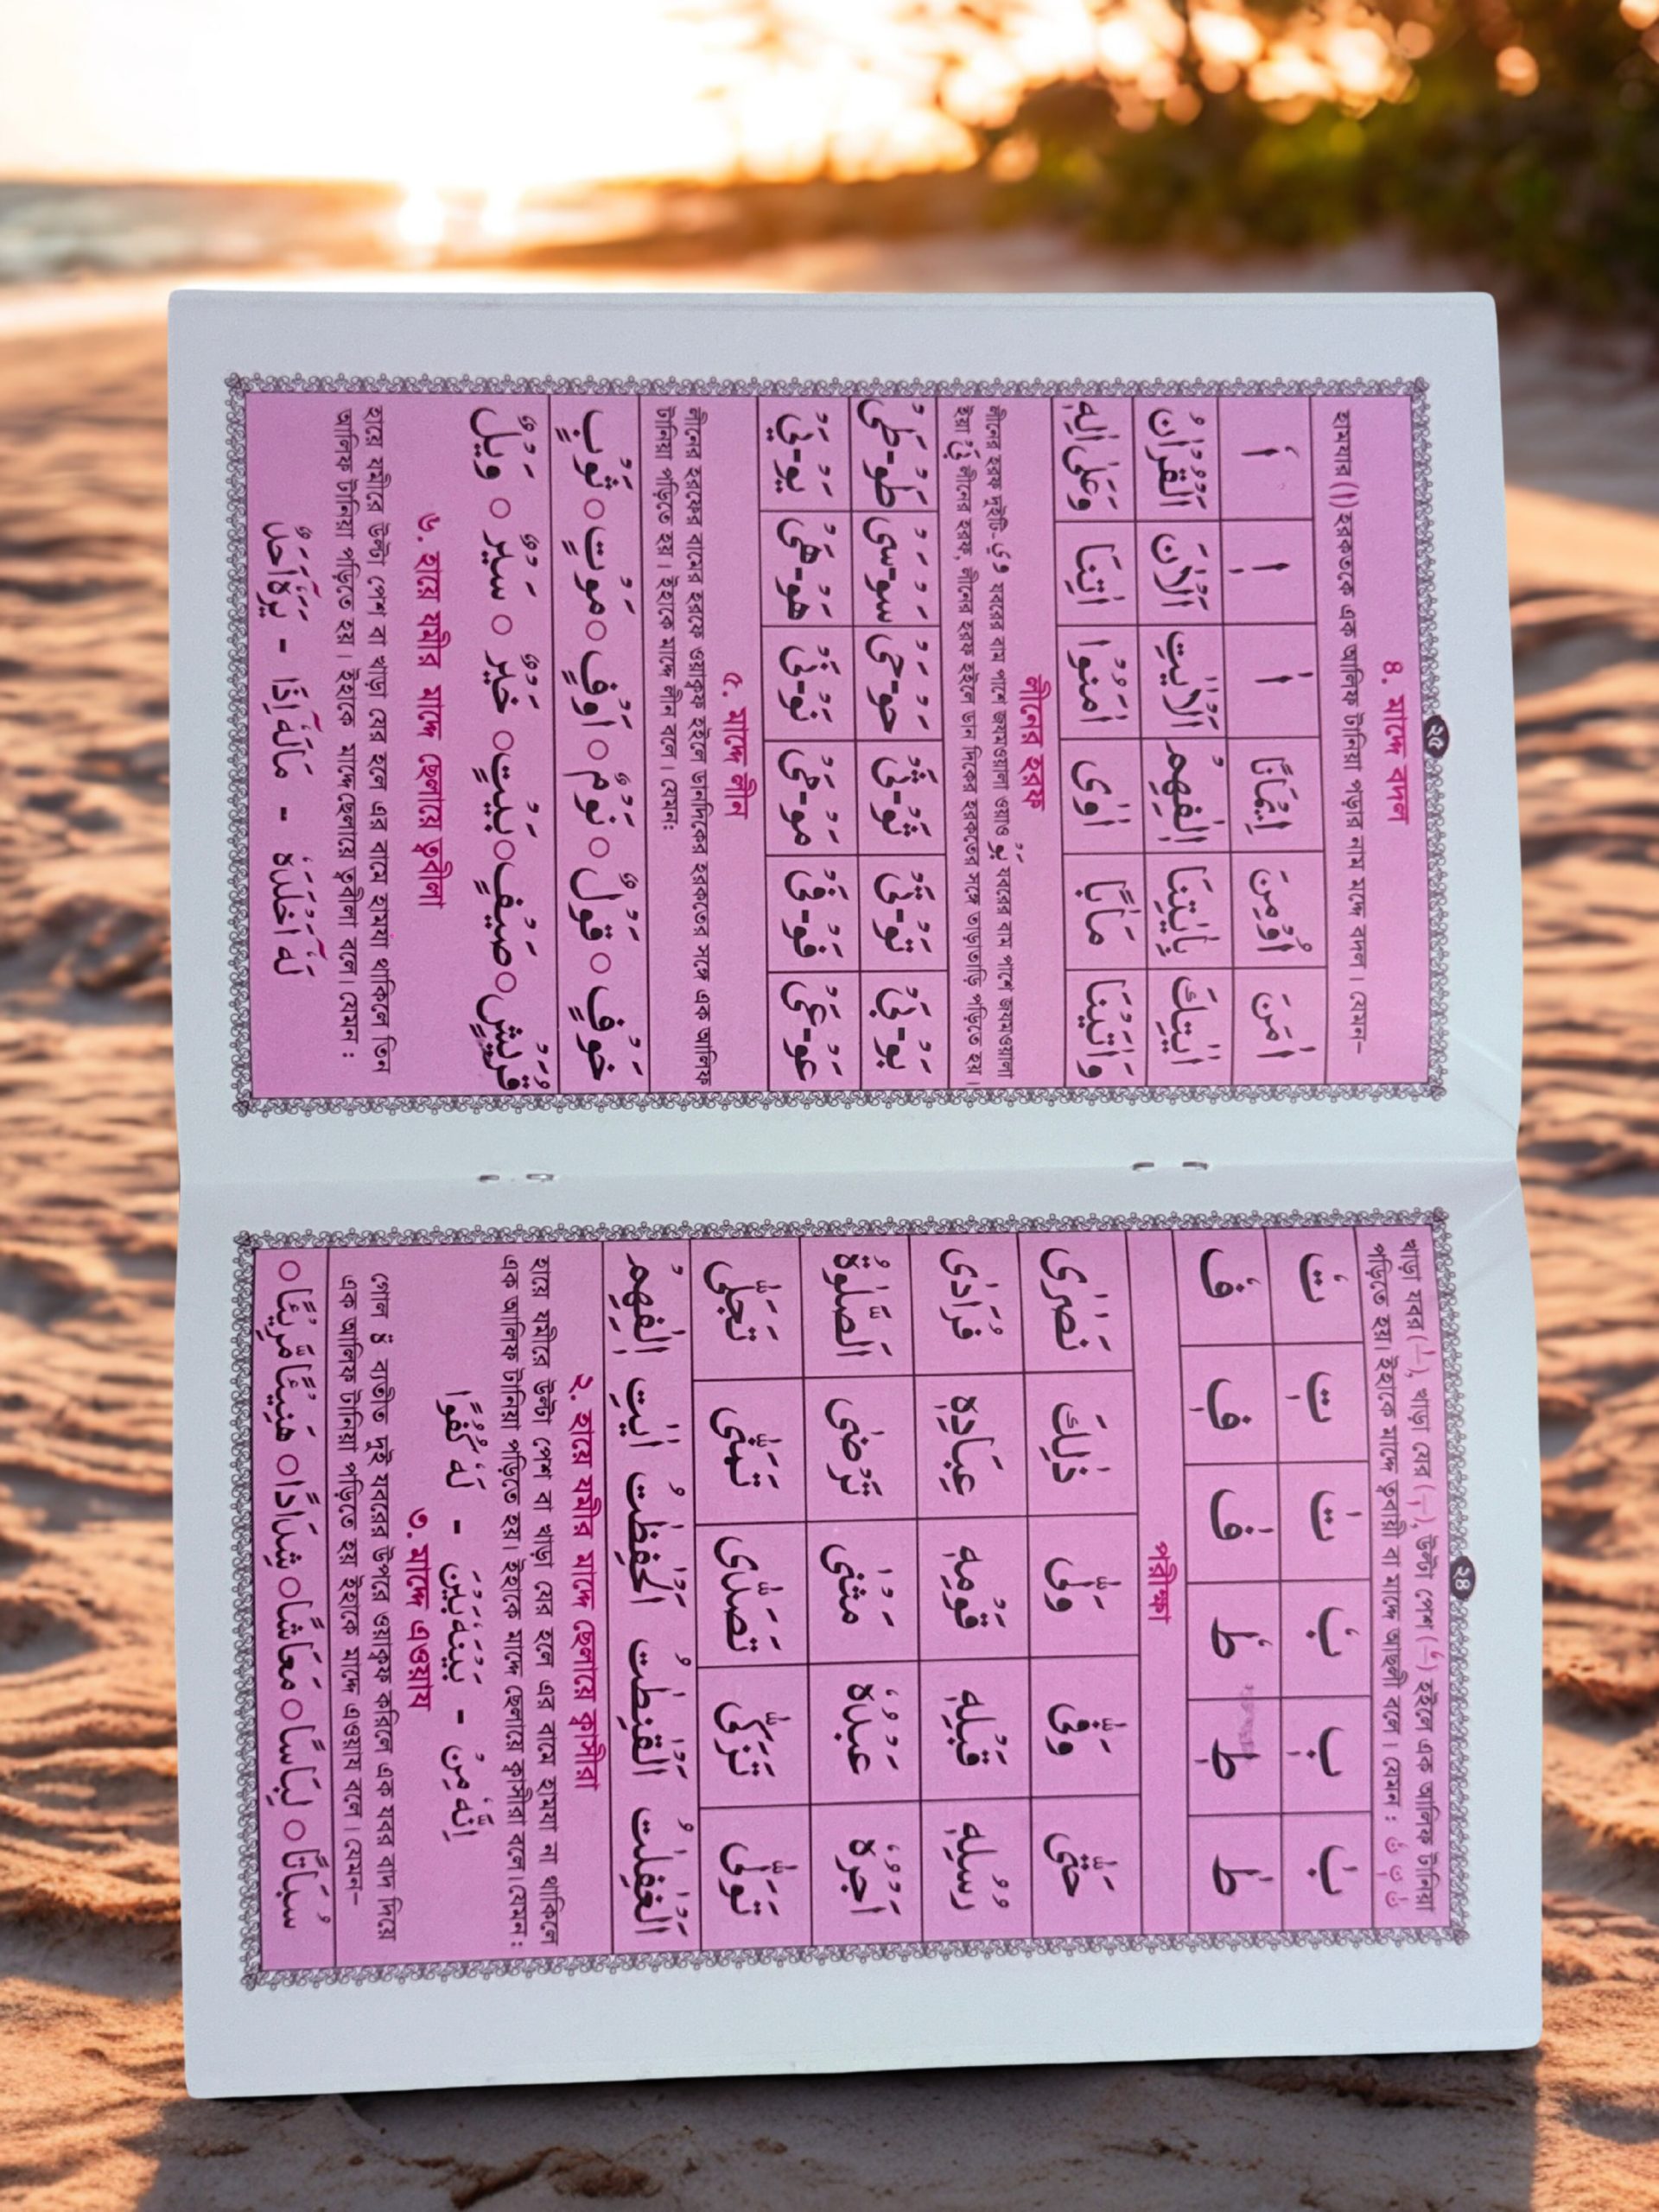 ২৪
খাড়া যবর (ـٰ), খাড়া যের (ـٖ), উল্টা পেশ (ـٗ) হইলে এক আলিফ টানিয়া
পড়িতে হয়। ইহাকে মাদ্দে ত্ববায়ী বা মাদ্দে আছলী বলে। যেমন :
بٰ بٖ بٗ تٰ تٖ تٗ
طٰ طٖ طٗ فٰ فٖ فٗ
পরীক্ষা
حَتّٰى وَفّٰى وَلّٰى ذٰلِكَ نَصٰرٰى
رُسُلِهٖ قَبْلِهٖ قَوْمِهٖ عِبَادِهٖ فُرَادٰى
اَجْرُهٗ عَبْدُهٗ مَثْنٰى تَرْضٰى اَلصَّلٰوةُ
تَوَلّٰى تَزَكّٰى تَصَدّٰى تَجَلّٰى
اَلْغٰفِلٰتُ اَلْقٰنِطٰتُ اَلْحٰفِظٰتُ اٰيٰتِ اٖلٰفِهِمْ
২. হায়ে যমীর মাদ্দে ছেলায়ে ক্বাসীরা
হায়ে যমীরে উল্টা পেশ বা খাড়া যের হলে এর বামে হামযা না থাকিলে
এক আলিফ টানিয়া পড়িতে হয়। ইহাকে মাদ্দে ছেলায়ে ক্বাসীরা বলে। যেমন :
اِنَّهٗ مِنْ - بَيْنَهٗ بَيْنَ - لَهٗ كُفُوًا
৩. মাদ্দে এওয়ায
গোল ةً ব্যতীত দুই যবরের উপরে ওয়াক্ফ করিলে এক যবর বাদ দিয়ে
এক আলিফ টানিয়া পড়িতে হয় ইহাকে মাদ্দে এওয়ায বলে। যেমন–
سُبَاتًا ○ لِبَاسًا ○ مَعَاشًا ○ شِدَادًا ○ هَنِيْئًا مَّرِيْئًا ○
২৫
৪. মাদ্দে বদল
হামযার (ا) হরকতকে এক আলিফ টানিয়া পড়ার নাম মাদ্দে বদল। যেমন–
اٰمَنَ اُوْمِنَ اِيْمَانًا اٰ اٖ اٗ
اٰيٰتِكَ بِاٰيٰتِنَا اٖلٰفِهِمْ اَلْاٰيٰتِ اَلْاٰنَ اَلْقُرْاٰنُ
وَاٰتَيْنَا مَاٰبًا اٰوٰى اٰمَنُوْا اٰتِنَا وَعَلٰى اٰلِهٖ
লীনের হরফ
লীনের হরফ দুইটি- و ى যবরের বাম পাশে জযমওয়ালা ওয়াও بَوْ যবরের বাম পাশে জযমওয়ালা
ইয়া بَىْ লীনের হরফ, লীনের হরফ হইলে ডান দিকের হরকতের সঙ্গে তাড়াতাড়ি পড়িতে হয়।
بَوْ-بَىْ تَوْ-تَىْ ثَوْ-ثَىْ حَوْ-حَىْ سَوْ-سَىْ طَوْ-طَىْ
عَوْ-عَىْ فَوْ-فَىْ مَوْ-مَىْ نَوْ-نَىْ هَوْ-هَىْ يَوْ-يَىْ
৫. মাদ্দে লীন
লীনের হরফের বামের হরফে ওয়াক্বফ হইলে ডানদিকের হরকতের সঙ্গে এক আলিফ
টানিয়া পড়িতে হয়। ইহাকে মাদ্দে লীন বলে। যেমন:
خَوْفٍ ○ قَوْلٌ ○ نَوْمٌ ○ اَوْفٍ ○ مَوْتٍ ○ ثَوْبٍ
قُرَيْشٍ ○ صَيْفٍ ○ بَيْتٍ ○ خَيْرٌ ○ سَيْرٌ ○ وَيْلٌ
৬. হায়ে যমীর মাদ্দে ছেলায়ে ত্ববীলা
হায়ে যমীরে উল্টা পেশ বা খাড়া যের হলে এর বামে হামযা থাকিলে তিন
আলিফ টানিয়া পড়িতে হয়। ইহাকে মাদ্দে ছেলায়ে ত্ববীলা বলে। যেমন :
لَهٗٓ اَخْلَدَهٗ - مَالَهٗٓ اِذَا - يَرَهٗٓ اَحَدٌ